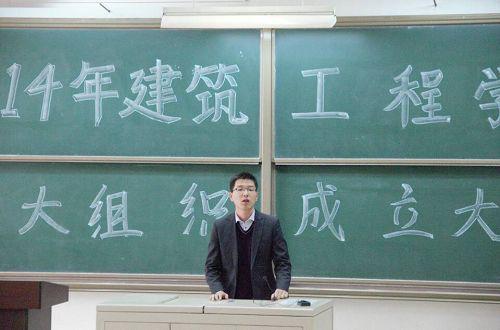 14年建筑工程学
大组织成立大